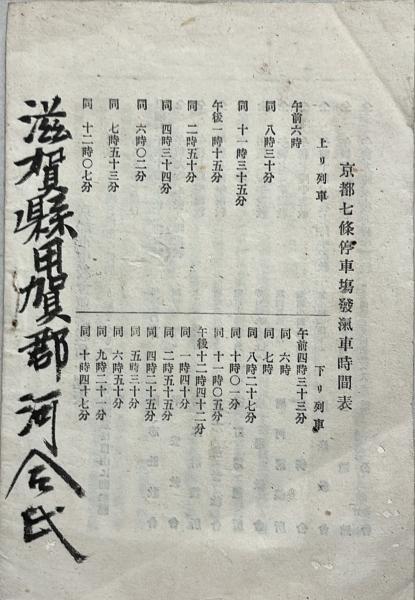 京都七條停車塲發滊車時間表
上リ列車
午前六時
同 八時三十分
同 十一時三十五分
午後一時十五分
同 二時五十分
同 四時三十四分
同 六時〇二分
同 七時五十三分
同 十二時〇七分
下リ列車
午前四時三十三分
同 六時
同 七時
同 八時二十七分
同 十時〇一分
同 十一時〇五分
午後十二時四十二分
同 一時四十分
同 二時五十五分
同 四時二十五分
同 五時三十分
同 六時五十分
同 九時二十一分
同 十時四十七分
滋賀縣甲賀郡河合氏